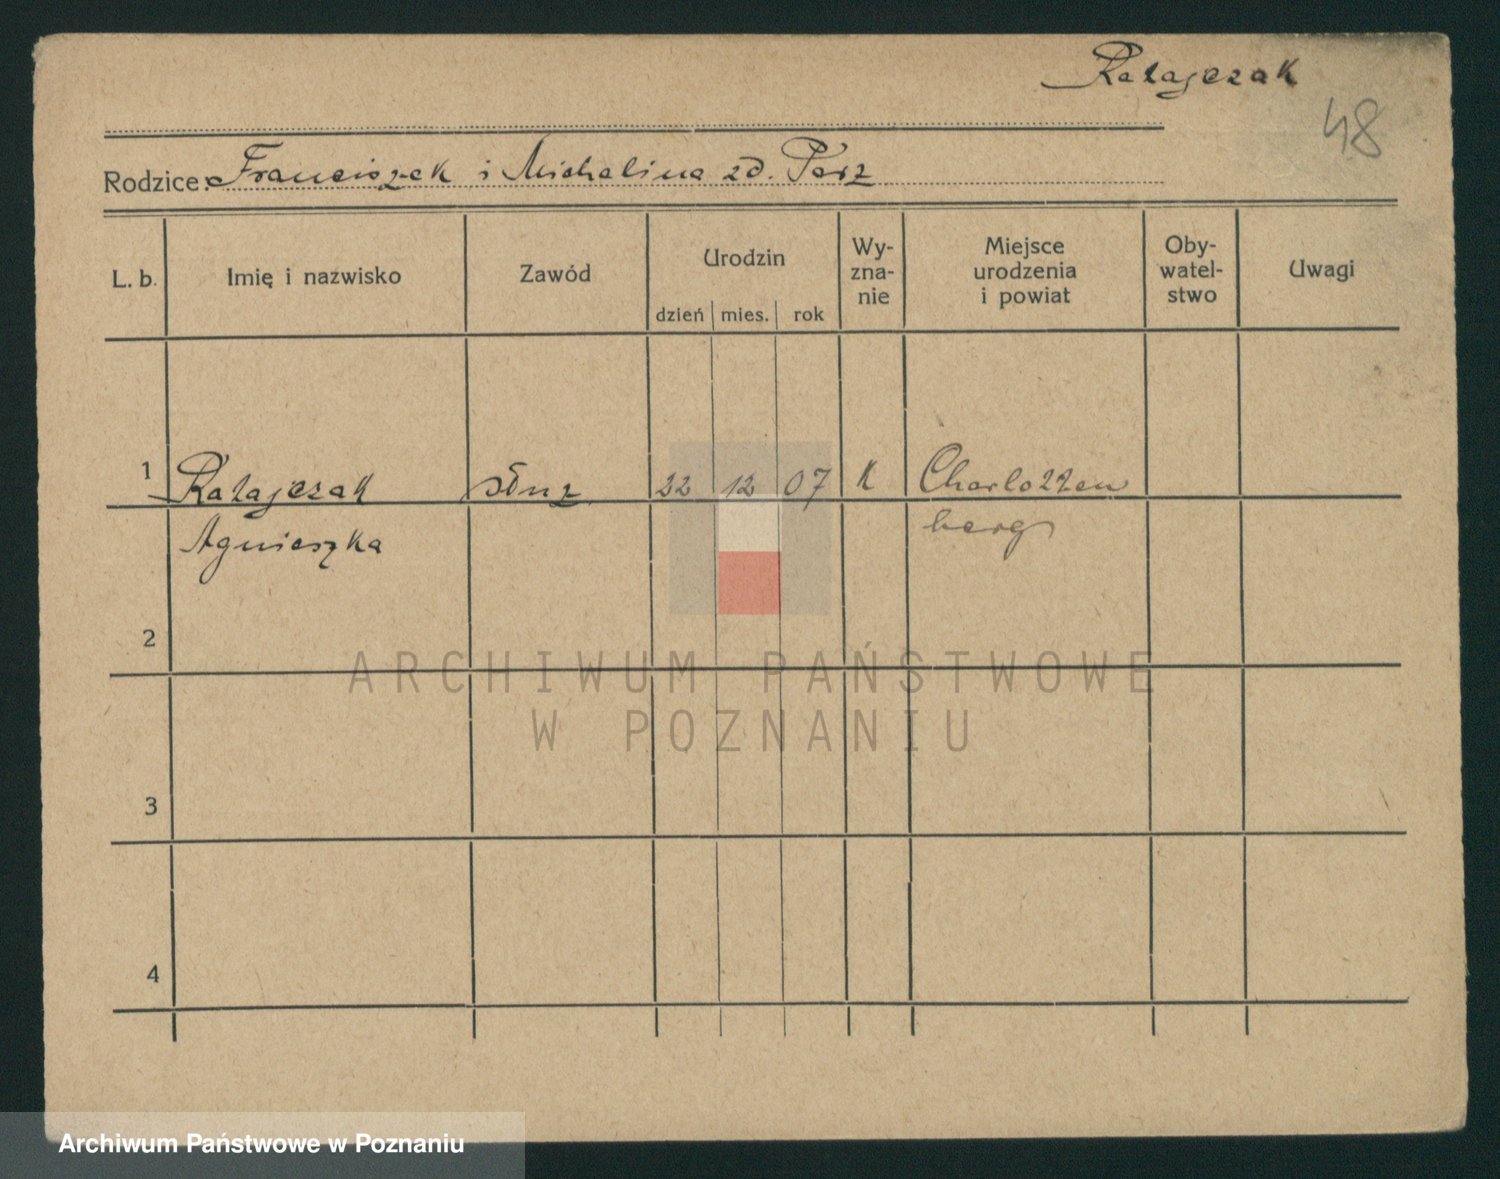 Ratajczak
48
Rodzice: Franciszek i Michalina zd. Parz
L. b.
Imię i nazwisko
Zawód
Urodzin
dzień
mies.
rok
Wy-
zna-
nie
Miejsce
urodzenia
i powiat
Oby-
watel-
stwo
Uwagi
1
Ratajczak
służ
22
12
07
K
Charlotten
Agnieszka
berg
2
ARCHIWUM PAŃSTWOWE
W POZNANIU
3
4
Archiwum Państwowe w Poznaniu